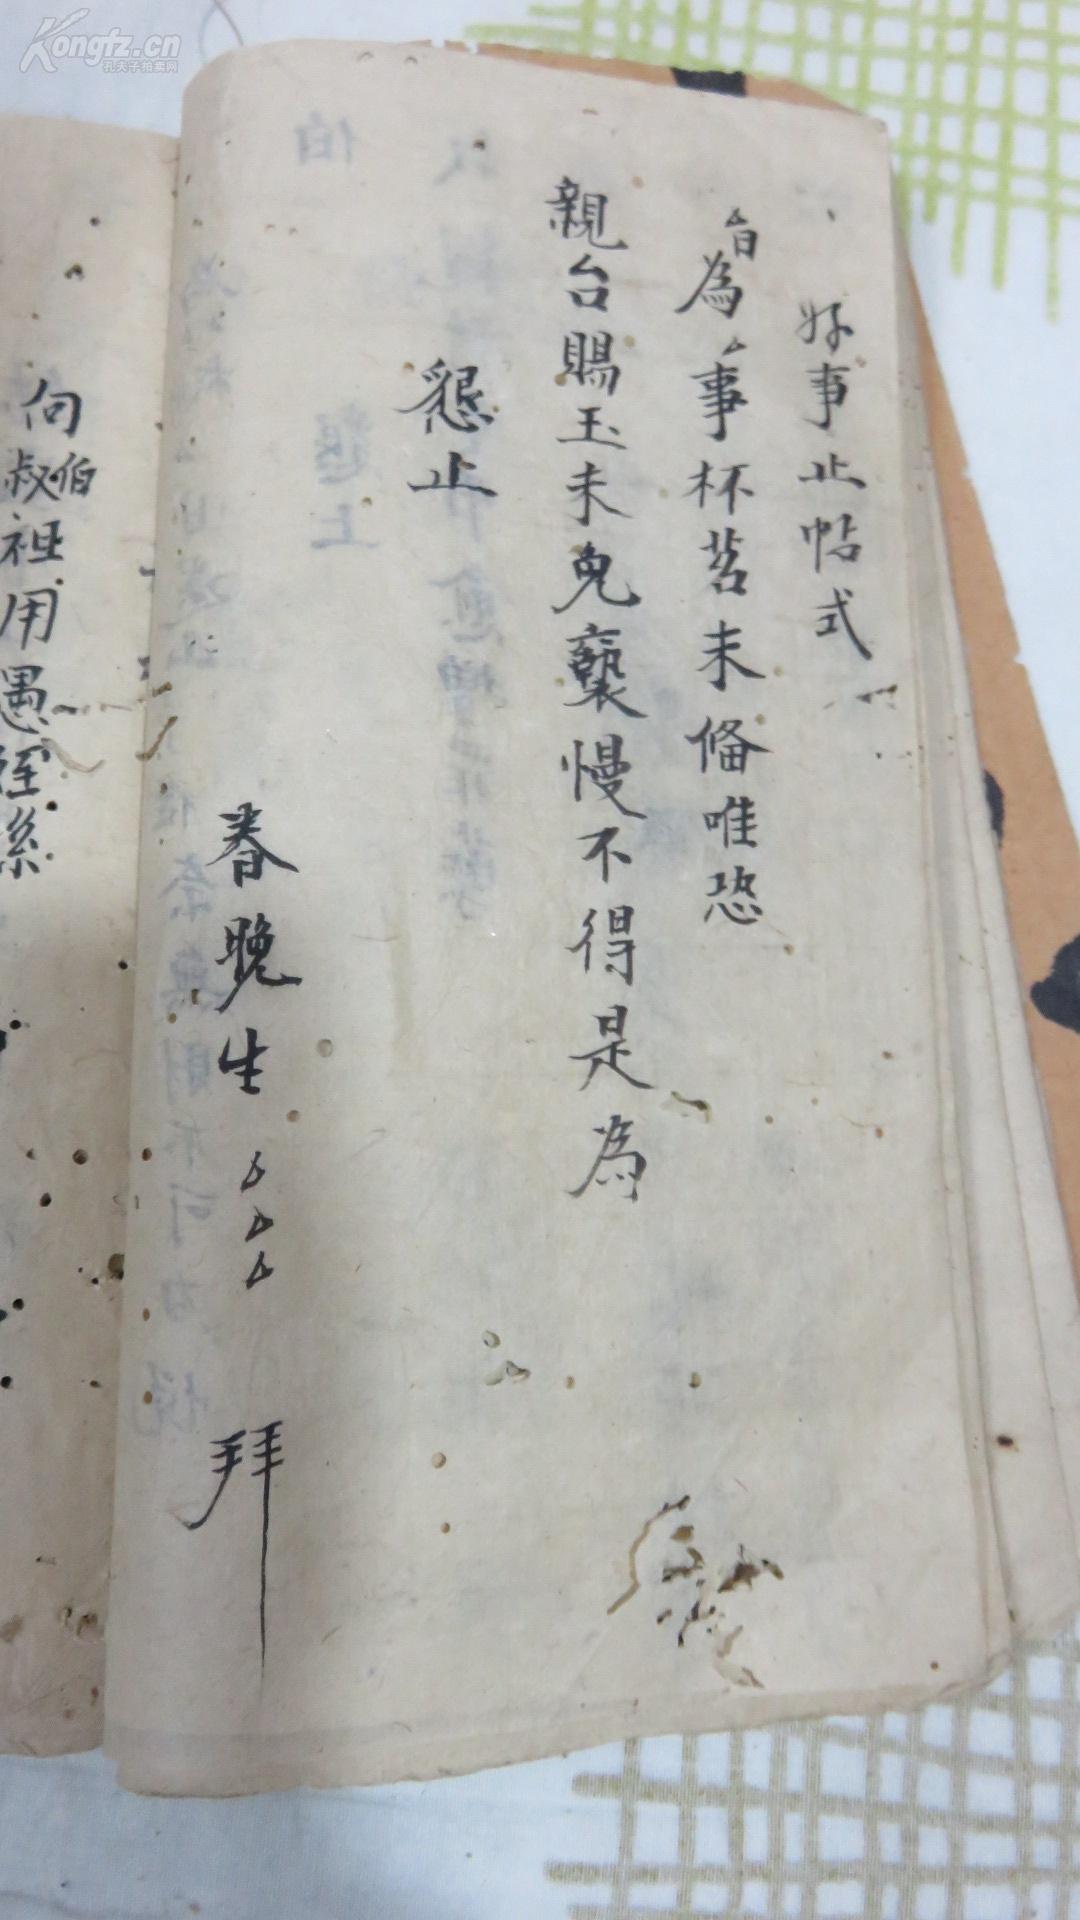 好事止帖式
ム日為ム事杯茗未俻唯恐
親台賜玉未免褻慢不得是為
懇止
眷晚生ムムム 拜
向
伯
叔祖用愚姪系
Kongfz.cn
孔夫子拍卖网